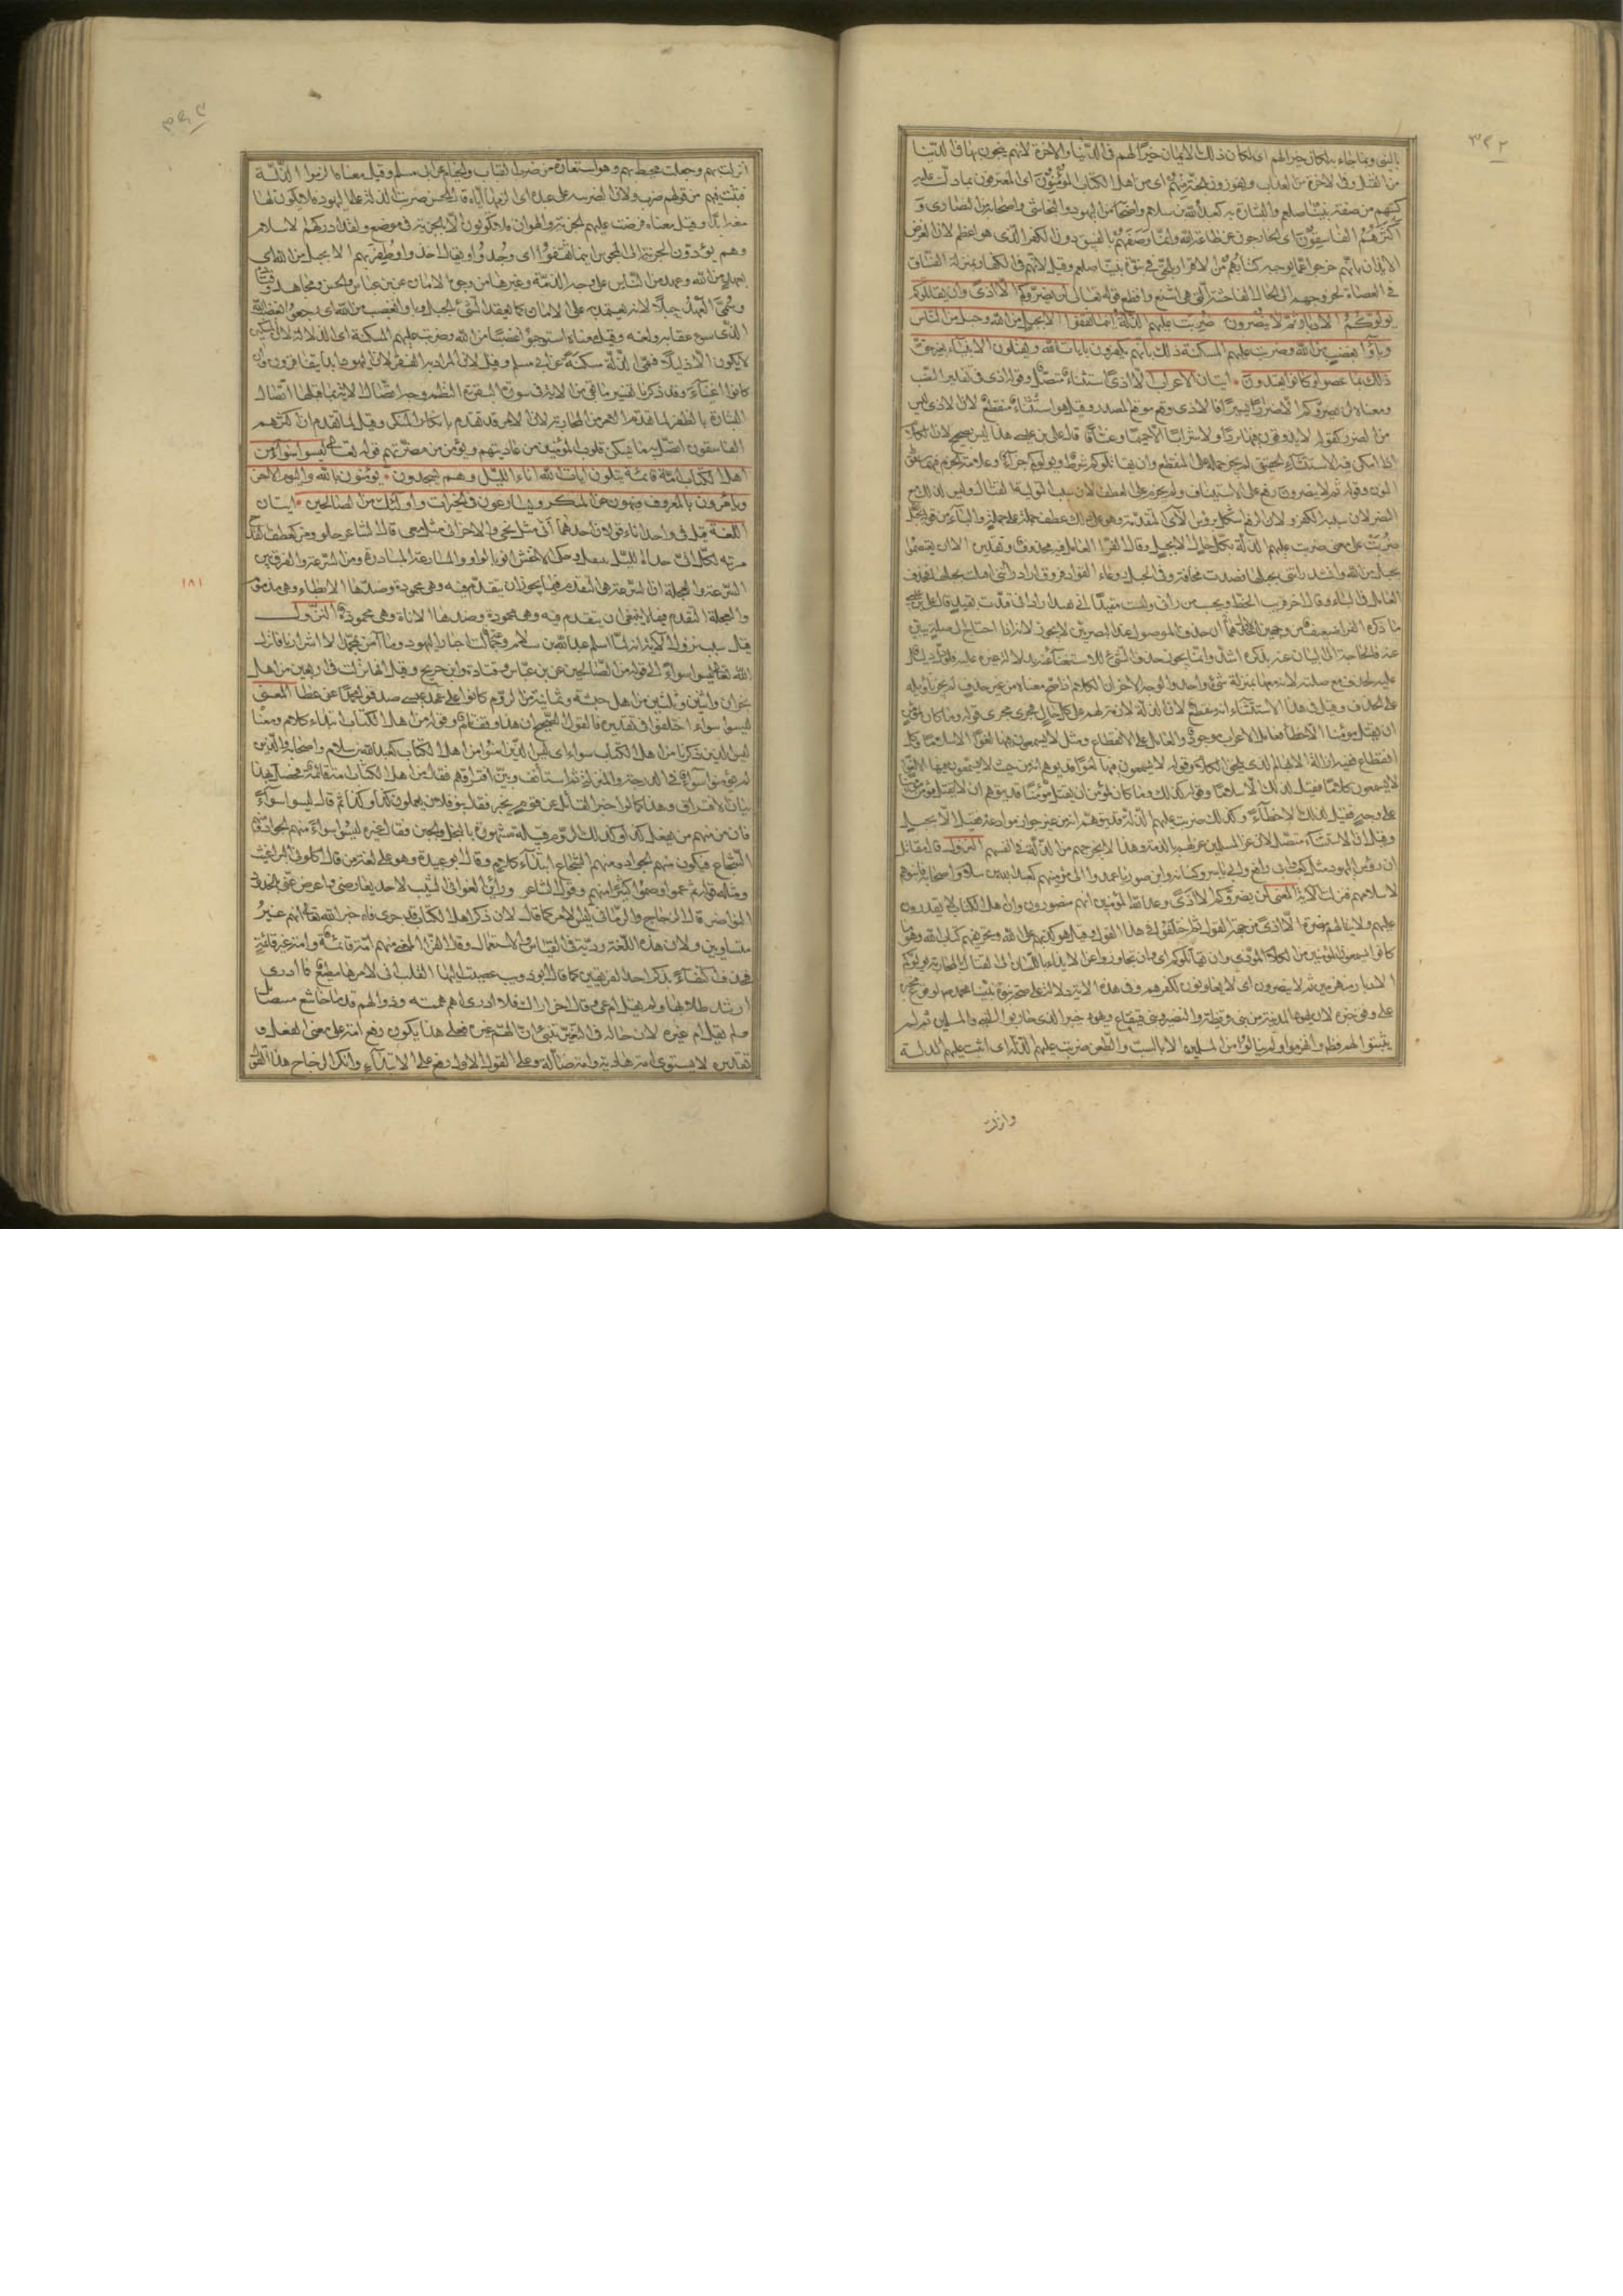 ٣٢٢
بالنبي وبما جاء به لكان خيرا لهم اى لكان ذلك الايمان خيرًا لهم فى الدنيا والاخرة لانهم ينجون بها فى الدنيا
من القتل وفى الاخرة من العذاب ويفوزون بالجنة منهم اى من اهل الكتاب المؤمنون اى المعترفون بما دلت عليه
كتبهم من صفة نبينا صلعم والبشارة به كعبد الله بن سلام واصحابه من اليهود والنجاشى واصحابه من النصارى و
اكثرهم الفاسقون اى الخارجون عن طاعة الله وانما وصفهم بالفسق دون الكفر الذى هو اعظم لان الغرض
الايذان بانهم خرجوا عما يوجبه كتابهم من الاقرار بالحق فى نبوة نبينا صلعم وقيل لانهم فى الكفار بمنزلة الفساق
فى العصاة بخروجهم الى الحال الفاحشة التى هى اشنع وافظع قوله تعالى لن يضروكم الا اذى وان يقاتلوكم
يولوكم الادبار ثم لا ينصرون ضربت عليهم الذلة اينما ثقفوا الا بحبل من الله وحبل من الناس
وباؤا بغضب من الله وضربت عليهم المسكنة ذلك بانهم كانوا يكفرون بايات الله ويقتلون الانبياء بغير حق
ذلك بما عصوا وكانوا يعتدون ايتان الاعراب الا اذى استثناء متصل وقوله اذى فى تقدير النصب
ومعناه لن يضروكم الا ضررا يسيرا فالاذى وقع موقع المصدر وقيل هو استثناء منقطع لان الاذى ليس
من الضرر كقوله لا يذوقون فيها بردا ولا شرابا الا حميما وغساقا قال على بن عيسى هذا ليس بصحيح لان الكلام
اذا امكن فيه الاستثناء الحقيقى لم يجز حمله على المنقطع وان يقاتلوكم شرط ويولوكم جزاء وعلامة الجزم فيهما سقوط
النون وقوله ثم لا ينصرون رفع على الاستيناف ولم يجزم على العطف لان سبب التولية القتال وليس كذلك منع
النصر لان سببه الكفر ولان الرفع اشكل برؤس الآى المتقدمة وهو مع ذلك عطف جملة على جملة والباء من قوله بحبل
ضربت على معنى ضربت عليهم الذلة بكل حال الا بحبل وقال الفراء العامل فيه محذوف وتقديره الا ان يعتصموا
بحبل من الله وانشد راتنى بحبلها فصدت مخافة وفى الحبل روعاء الفواد فروق اراد راتنى اقبلت بحبلها فحذف
العامل فى الباء وقال اخر قريب الخطو يحسب من رانى ولست مقيدا انى بقيد اراد انى قيدت بقيد قال على بن عيسى
ما ذكره الفراء ضعيف من وجهين احدهما ان حذف الموصول عند البصريين لا يجوز لانه اذا احتاج الى صلة يبين
عنه فالحاجة الى البيان عنه بذكره اشد وانما يجوز حذف الشئ للاستغناء عنه بدلالة غيره عليه فلو دل دليل
عليه لحذف مع صلته لانه معها بمنزلة شئ واحد والوجه الاخر ان الكلام اذا صح معناه من غير حذف لم يجز تأويله
على الحذف وقيل فى هذا الاستثناء انه منقطع لان الذلة لازمة لهم على كل حال فجرى مجرى قوله وما كان لمؤمن
ان يقتل مؤمنا الا خطأ فعامل الاعراب موجود والمعنى على الانقطاع ومثله لا يسمعون فيها لغوا الا سلاما وكل
انقطاع فيه انما هو لازالة الابهام الذى يلحق الكلام فقوله لا يسمعون فيها لغوا قد يوهم انه من حيث لا يسمعون فيها لغوا
لا يسمعون كلاما فقيل لذلك الا سلاما وقوله كذلك وما كان لمؤمن ان يقتل مؤمنا قد يوهم ان لا يقتل مؤمن مؤمنا
على وجه فقيل لذلك الا خطأ وكذلك ضربت عليهم الذلة قد يتوهم انه من غير جواز موادعة فقيل الا بحبل
وقيل ان الاستثناء متصل لان عز المسلمين عز لهم بالذمة وهذا لا يخرجهم من الذلة فى انفسهم النزول قال مقاتل
ان رؤس اليهود مثل كعب وابى رافع وابى ياسر وكنانة وابن صوريا عمدوا الى مؤمنيهم كعبد الله بن سلام واصحابه فانبوهم
لاسلامهم فنزلت الاية المعنى لن يضروكم الا اذى وعد الله المؤمنين انهم منصورون وان اهل الكتاب لا يقدرون
عليهم ولا ينالهم مضرة الا اذى من جهة القول ثم اختلفوا فى هذا القول فقيل هو كذبهم على الله وتحريفهم كتاب الله وقيل هو ما
كانوا يسمعون المؤمنين من الكلام المؤذى وان يقاتلوكم اى وان يجاوزوا عن الايذاء باللسان الى القتال والمحاربة يولوكم
الادبار منهزمين ثم لا ينصرون اى لا يعاونون لكفرهم وفى هذه الاية دلالة على صحة نبوة نبينا محمد صلعم لوقوع مخبره
على وفق خبره لان يهود المدينة من بنى قريظة والنضير وبنى قينقاع ويهود خيبر الذين حاربوا النبى والمسلمين ثم لم
يثبتوا لهم قط وانهزموا ولم ينالوا من المسلمين الا بالسب والطعن ضربت عليهم الذلة اى اثبت عليهم الذلة
وانزلت
انزلت بهم وجعلت محيطة بهم وهو استعارة من ضرب القباب والخيام عن ابى مسلم وقيل معناه الزموا الذلة
فثبتت فيهم من قولهم ضرب فلان الضريبة على عبده اى الزمها اياه قال الحسن ضربت الذلة على اليهود فلا يكون لها
منعة ابدا وقيل معناه فرضت عليهم الجزية والهوان فلا يكونون الا بالجزية فى موضع ولقد ادركهم الاسلام
وهم يؤدون الجزية الى المجوس اينما ثقفوا اى وجدوا ويقال اخذوا وظفر بهم الا بحبل من الله اى
بعهد من الله وعهد من الناس على وجه الذمة وغيرها من وجوه الامان عن ابن عباس والحسن ومجاهد وقتادة
وسمى العهد حبلا لانه يعقد به على الامان كما يعقد الشئ بالحبل وباؤا بغضب من الله اى رجعوا بغضب الله
الذى هو عقابه ولعنه وقيل معناه استوجبوا غضبا من الله وضربت عليهم المسكنة اى الذلة لان المسكين
لا يكون الا ذليلا فسمى الذلة مسكنة عن ابى مسلم وقيل لان المراد به الفقر لان اليهود ابدا يتفاقرون وان
كانوا اغنياء وقد ذكرنا تفسير ما بقى من الاية فى سورة البقرة النظم وجه اتصال الاية بما قبلها اتصال
البشارة بالظفر لما تقدم الامر من المحاربة لان الامر قد تقدم بانكار المنكر وقيل لما تقدم ان اكثرهم
الفاسقون اتصل به ما يسكن قلوب المؤمنين من عاديتهم ويؤمن من مضرتهم قوله تعالى ليسوا سواء من
اهل الكتاب امة قائمة يتلون ايات الله اناء الليل وهم يسجدون يؤمنون بالله واليوم الاخر
ويامرون بالمعروف وينهون عن المنكر ويسارعون فى الخيرات واولئك من الصالحين ايتان
اللغة قيل فى واحد اناء قولان احدهما انى مثل نحى والاخر انى مثل معى قال الشاعر حلو ومر كعطف القدح
مرته بكل انى حداه الليل ينتعل وحكى الاخفش انو بالواو والمسارعة المبادرة ومن السرعة والفرق بين
السرعة والعجلة ان السرعة هى التقدم فيما يجوز ان يتقدم فيه وهى محمودة وضدها الابطاء وهى مذموم
والعجلة التقدم فيما لا ينبغى ان يتقدم فيه وهى مذمومة وضدها الاناة وهى محمودة النزول
قيل سبب نزول الاية انه لما اسلم عبد الله بن سلام وجماعة قالت احبار اليهود وما آمن بمحمد الا اشرارنا فانزل
الله تعالى ليسوا سواء الى قوله من الصالحين عن ابن عباس وقتادة وابن جريج وقيل انها نزلت فى اربعين من اهل
نجران واثنين وثلثين من اهل حبشة وثمانية من الروم كانوا على عهد عيسى صدقوا محمدا عن عطا المعنى
ليسوا سواء اختلفوا فى تقديره فالقول الصحيح ان هذا وقف تام وقوله من اهل الكتاب ابتداء كلام ومعناه
ليس الذين ذكرنا من اهل الكتاب سواء اى ليس الذين امنوا من اهل الكتاب كعبد الله بن سلام واصحابه والذين
لم يؤمنوا سواء فى الدرجة والمنزلة ثم استأنف وبين افتراقهم فقال من اهل الكتاب امة قائمة فحصل بهذا
بيان الافتراق وهذا كما لو اخبر القائل عن قوم بخبر فقال بنو فلان يعملون كذا وكذا ثم قال ليسوا سواء
فان منهم من يفعل كذا وكذلك لو ذم قبيلة مشهورة بالبخل والجبن فقال غيره ليسوا سواء منهم الجواد ومنهم
الشجاع فيكون منهم الجواد ومنهم الشجاع ابتداء كلام وقال ابو عبيدة وهو على لغة من قال اكلونى البراغيث
ومثله قوله ثم عموا وصموا كثير منهم وقول الشاعر وراين الغوانى الشيب لاح بعارضى فاعرضن عنى بالخدود
النواضر قال الزجاج والرمانى ليس الامر كما قال لان ذكر اهل الكتاب قد جرى فاخبر الله تعالى انهم غير
متساوين ولان هذه اللغة ردية فى القياس والاستعمال وقال الفراء المعنى منهم امة قائمة وامة غير قائمة
فحذف اكتفاء بذكر احد الفريقين كما قال ابو ذويب عصيت اليها القلب انى لامرها مطيع فما ادرى
ارشد طلابها ولم يقل ام غى وقال اخر اراك فلا ادرى اهم هممته وذو الهم قدما خاشع متضائل
ولم يقل ام غيره لان حاله فى التغير تنبئ ان الهم غيره فعلى هذا يكون رفع امة على معنى الفعل و
تقديره لا يستوى امة هادية وامة ضالة وعلى القول الاول رفع على الابتداء وانكر الزجاج هذا القول
١٨١